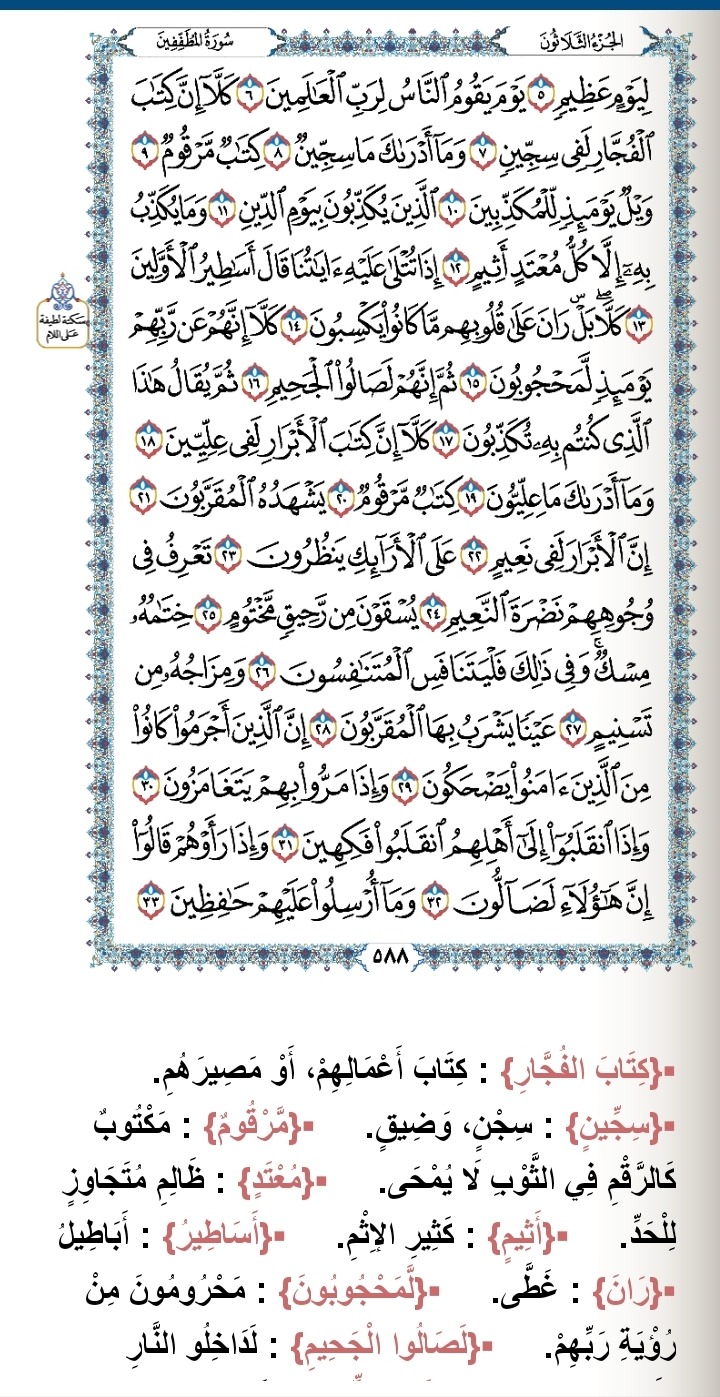 الجُزْءُ الثَّلَاثُونَ
سُورَةُ المُطَفِّفِينَ
لِيَوْمٍ عَظِيمٍ ٥ يَوْمَ يَقُومُ ٱلنَّاسُ لِرَبِّ ٱلْعَٰلَمِينَ ٦ كَلَّآ إِنَّ كِتَٰبَ
ٱلْفُجَّارِ لَفِى سِجِّينٍ ٧ وَمَآ أَدْرَىٰكَ مَا سِجِّينٌ ٨ كِتَٰبٌ مَّرْقُومٌ ٩
وَيْلٌ يَوْمَئِذٍ لِّلْمُكَذِّبِينَ ١٠ ٱلَّذِينَ يُكَذِّبُونَ بِيَوْمِ ٱلدِّينِ ١١ وَمَا يُكَذِّبُ
بِهِۦٓ إِلَّا كُلُّ مُعْتَدٍ أَثِيمٍ ١٢ إِذَا تُتْلَىٰ عَلَيْهِ ءَايَٰتُنَا قَالَ أَسَٰطِيرُ ٱلْأَوَّلِينَ
١٣ كَلَّا ۖ بَلْ ۜ رَانَ عَلَىٰ قُلُوبِهِم مَّا كَانُوا۟ يَكْسِبُونَ ١٤ كَلَّآ إِنَّهُمْ عَن رَّبِّهِمْ
سكتة لطيفة
على اللام
يَوْمَئِذٍ لَّمَحْجُوبُونَ ١٥ ثُمَّ إِنَّهُمْ لَصَالُوا۟ ٱلْجَحِيمِ ١٦ ثُمَّ يُقَالُ هَٰذَا
ٱلَّذِى كُنتُم بِهِۦ تُكَذِّبُونَ ١٧ كَلَّآ إِنَّ كِتَٰبَ ٱلْأَبْرَارِ لَفِى عِلِّيِّينَ ١٨
وَمَآ أَدْرَىٰكَ مَا عِلِّيُّونَ ١٩ كِتَٰبٌ مَّرْقُومٌ ٢٠ يَشْهَدُهُ ٱلْمُقَرَّبُونَ ٢١
إِنَّ ٱلْأَبْرَارَ لَفِى نَعِيمٍ ٢٢ عَلَى ٱلْأَرَآئِكِ يَنظُرُونَ ٢٣ تَعْرِفُ فِى
وُجُوهِهِمْ نَضْرَةَ ٱلنَّعِيمِ ٢٤ يُسْقَوْنَ مِن رَّحِيقٍ مَّخْتُومٍ ٢٥ خِتَٰمُهُۥ
مِسْكٌ ۚ وَفِى ذَٰلِكَ فَلْيَتَنَافَسِ ٱلْمُتَنَٰفِسُونَ ٢٦ وَمِزَاجُهُۥ مِن
تَسْنِيمٍ ٢٧ عَيْنًا يَشْرَبُ بِهَا ٱلْمُقَرَّبُونَ ٢٨ إِنَّ ٱلَّذِينَ أَجْرَمُوا۟ كَانُوا۟
مِنَ ٱلَّذِينَ ءَامَنُوا۟ يَضْحَكُونَ ٢٩ وَإِذَا مَرُّوا۟ بِهِمْ يَتَغَامَزُونَ ٣٠
وَإِذَا ٱنقَلَبُوٓا۟ إِلَىٰٓ أَهْلِهِمُ ٱنقَلَبُوا۟ فَكِهِينَ ٣١ وَإِذَا رَأَوْهُمْ قَالُوٓا۟
إِنَّ هَٰٓؤُلَآءِ لَضَآلُّونَ ٣٢ وَمَآ أُرْسِلُوا۟ عَلَيْهِمْ حَٰفِظِينَ ٣٣
٥٨٨
▪{كِتَابَ الفُجَّارِ} : كِتَابَ أَعْمَالِهِمْ، أَوْ مَصِيرَهُم.
▪{سِجِّينٍ} : سِجْنٍ، وَضِيقٍ. ▪{مَّرْقُومٌ} : مَكْتُوبٌ
كَالرَّقْمِ فِي الثَّوْبِ لَا يُمْحَى. ▪{مُعْتَدٍ} : ظَالِمٍ مُتَجَاوِزٍ
لِلْحَدِّ. ▪{أَثِيمٍ} : كَثِيرِ الإِثْمِ. ▪{أَسَاطِيرُ} : أَبَاطِيلُ
▪{رَانَ} : غَطَّى. ▪{لَّمَحْجُوبُونَ} : مَحْرُومُونَ مِنْ
رُؤْيَةِ رَبِّهِمْ. ▪{لَصَالُوا الْجَحِيمِ} : لَدَاخِلُو النَّارِ